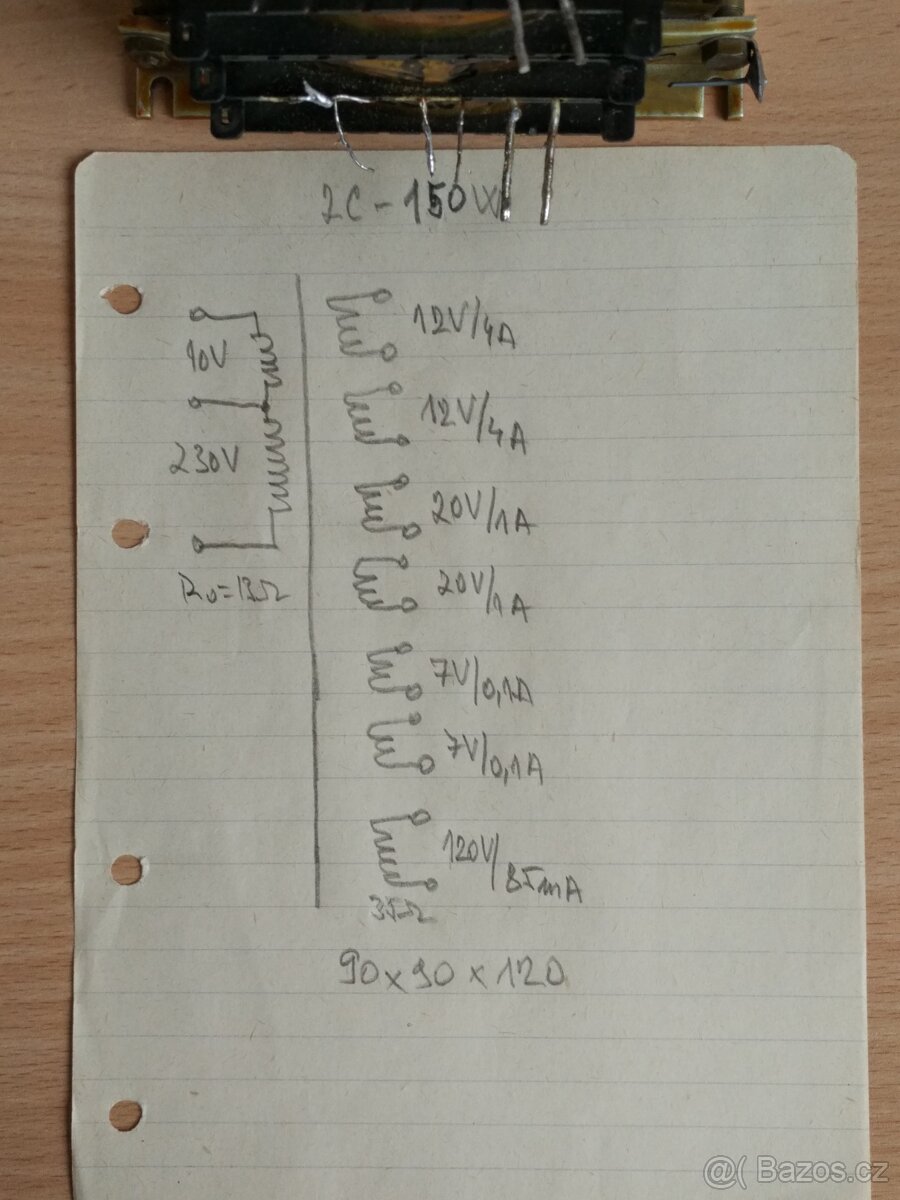 2C-150W
10V
230V
R₀=13Ω
12V/4A
12V/4A
20V/1A
20V/1A
7V/0,1A
7V/0,1A
120V/85mA
35Ω
90x90x120
@( Bazos.cz